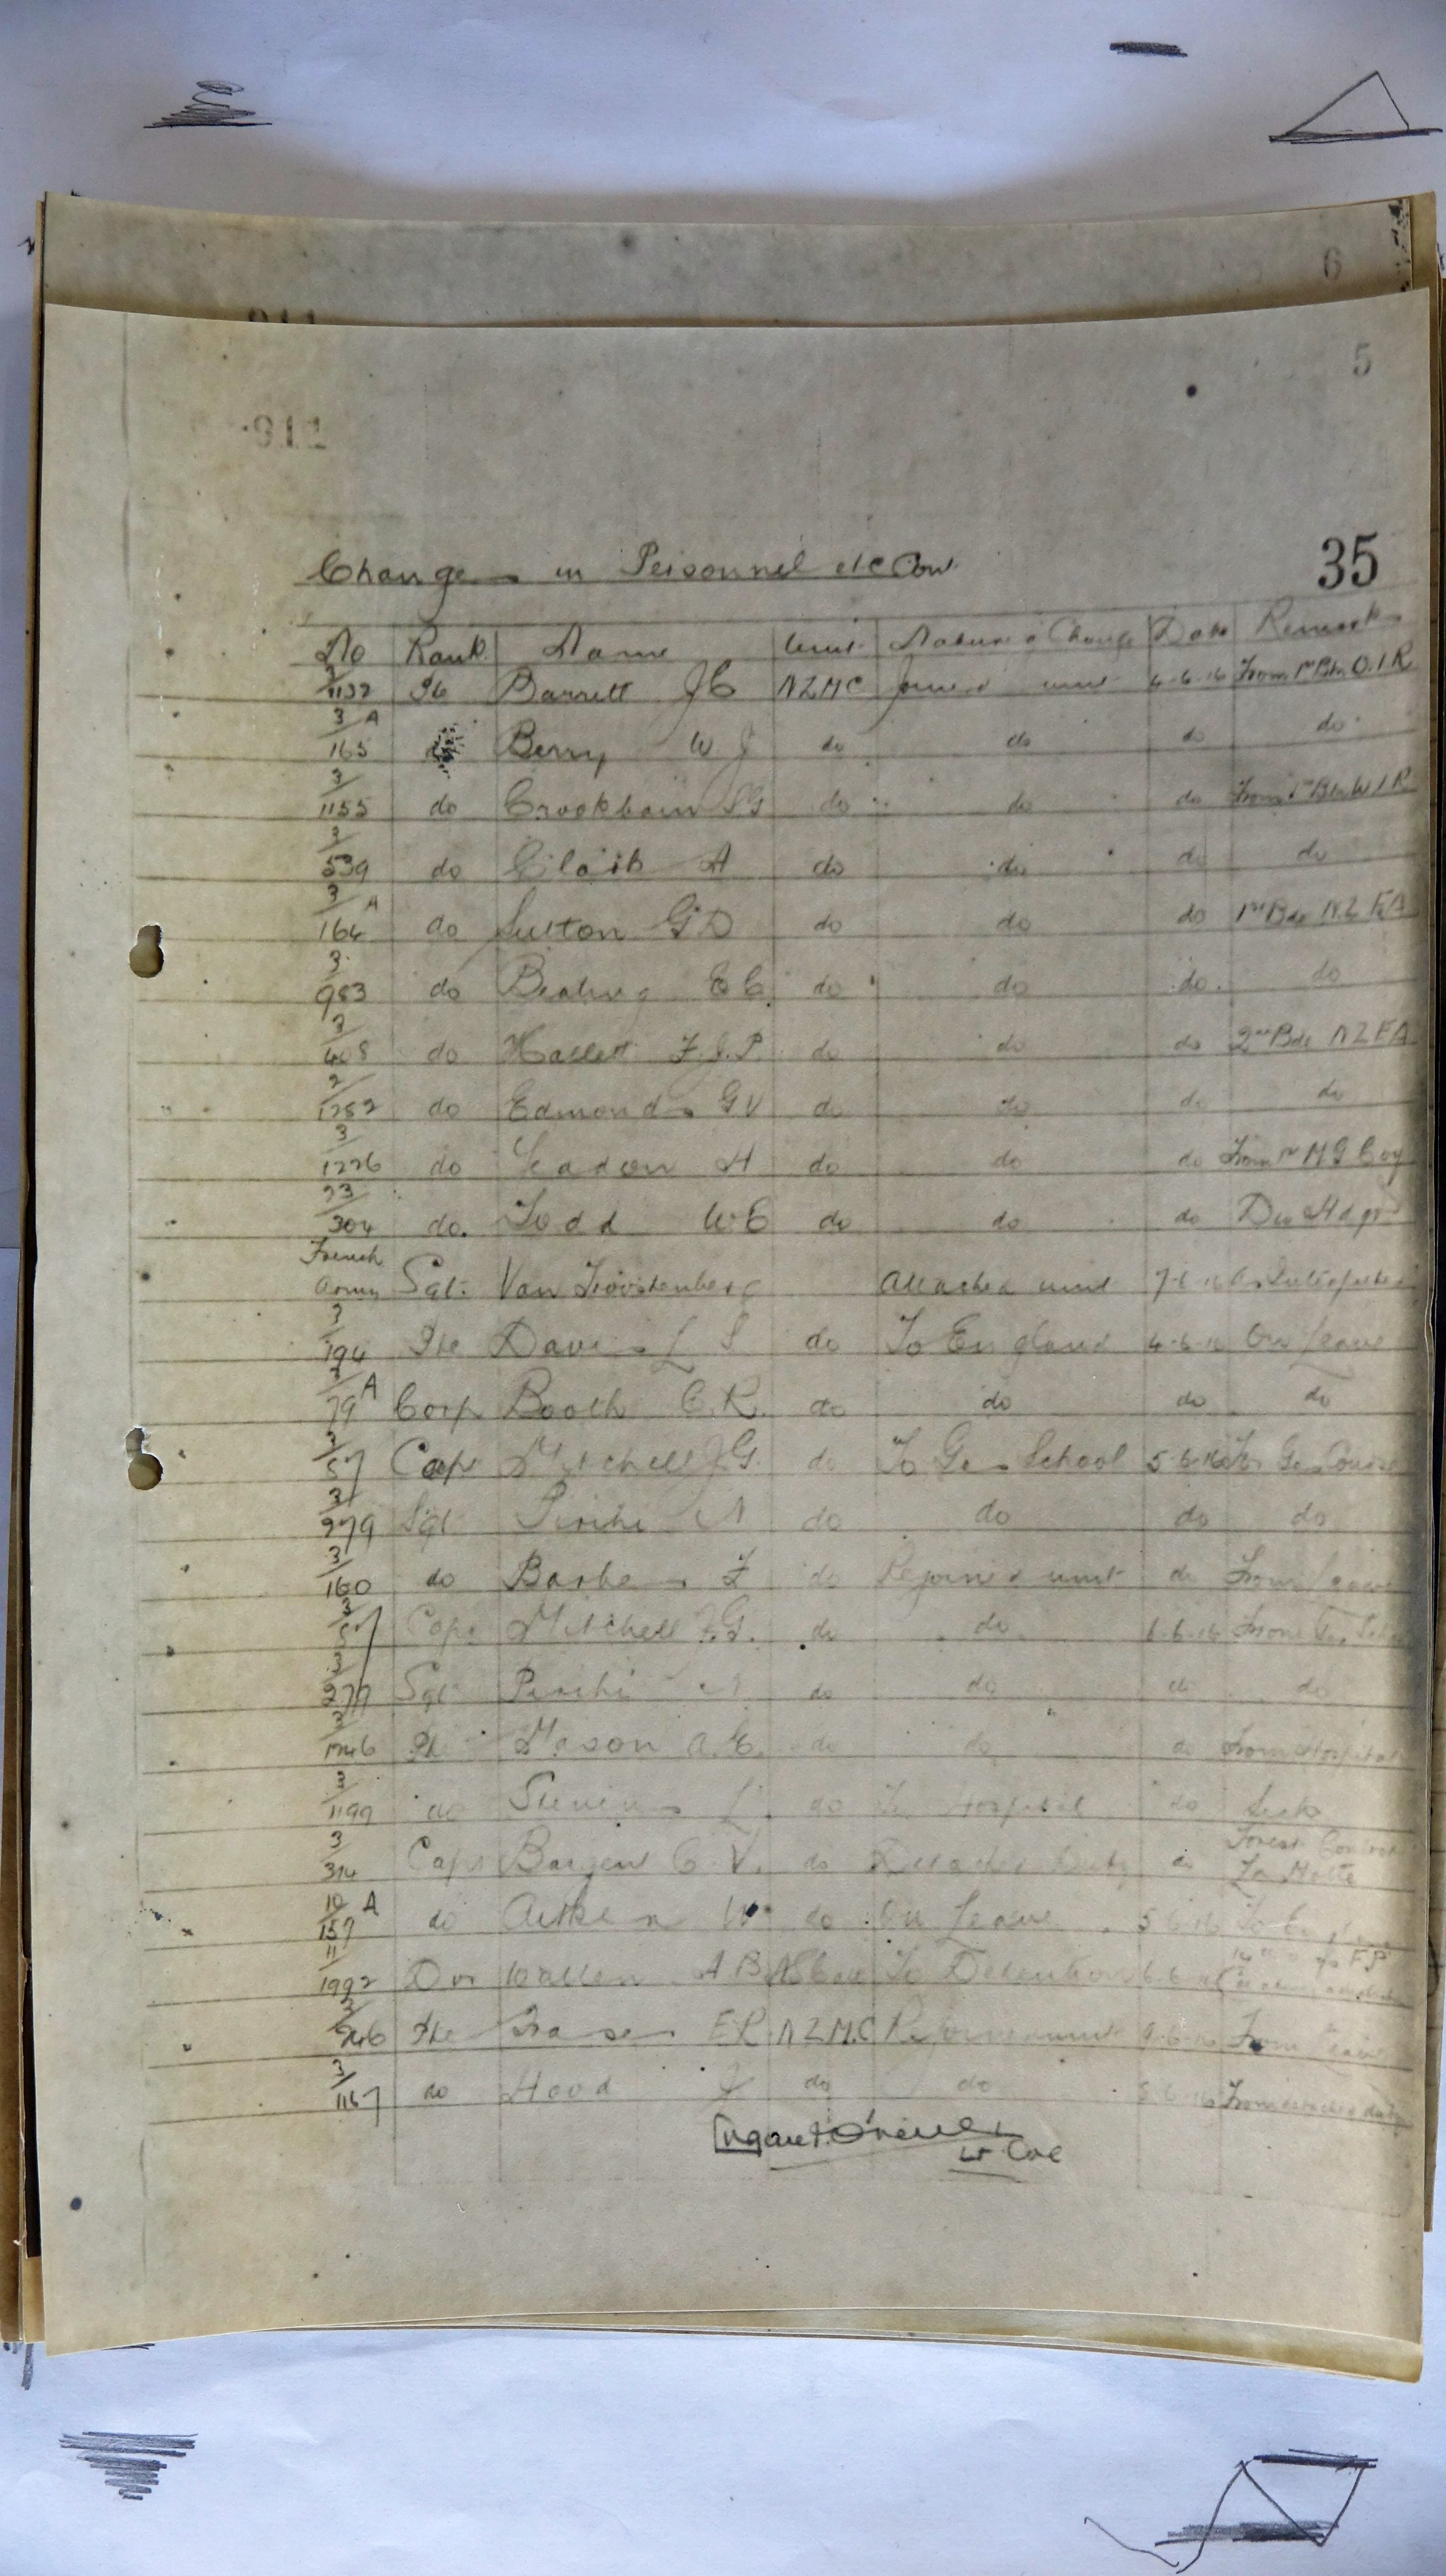 6
911
5
911
35
Changes in Personnel etc Con
No Rank Name Unit Nature of Change Date Remarks
3/1132 Pte Barrett J C NZMC Joined unit 4-6-16 From 1st Btn O.I.R
3/165 A do Berry W J do do do do
3/1155 do S G do do do From 1st Btn W I R
3/539 do A do do do do
3/164 A do Sutton G D do do do 1st Bde NZFA
3/983 do E C do do do do
3/408 do Hallett F.J.P. do do do 2nd Bde NZFA
1252 do Edmonds G V do do do do
3/1226 do H do do do From 1st M G Coy
23/304 do. Todd W E do do do Div Hdqrs
French Army Sgt. Van attached unit 7-6-16 As Interpreter
3/194 Pte Davis L S do To England 4-6-16 On Leave
3/79 A Corp Booth C.R. do do do do
3/57 Capt Mitchell J.G. do To Gas School 5-6-16 To Gas Course
3/279 Sgt N do do do do
3/160 do F do Rejoined unit do From leave
3/57 Capt Mitchell J.G. do do 6-6-16 From Gas School
3/279 Sgt N do do do do
3/1246 Pte Mason A.E. do do do From Hospital
3/1199 do Stevens L do To Hospital do Sick
3/314 Capt Bargent C.V. do Detached Duty do Forest Control La Motte
10/157 A do Aitken W do On Leave 5-6-16 To England
11/1992 Dvr Wallen A B To Detention 6-6-16 F P
3/246 Pte Fraser E R NZMC Rejoined unit 9-6-16 From leave
3/1167 do Hood J do do 5-6-16 From detached duty
Lt Col